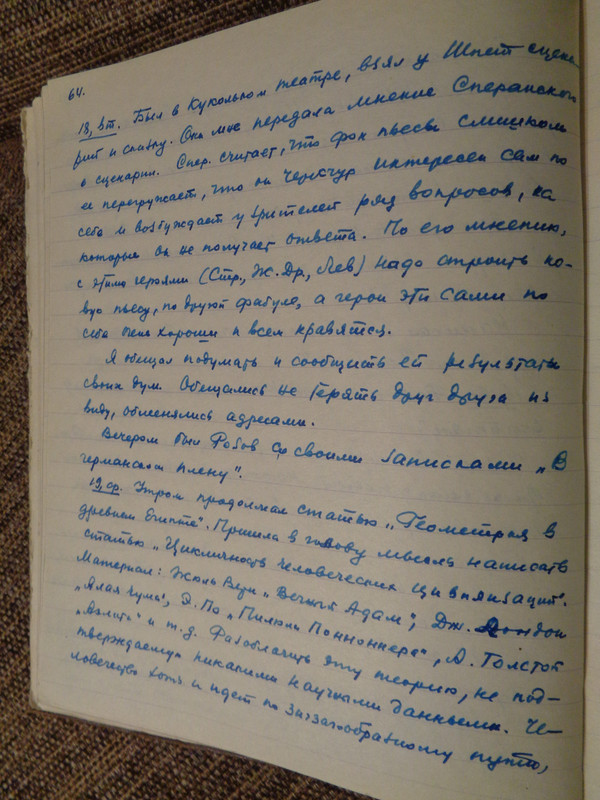 64.
18, вт. Был в Кукольном театре, взял у Шпет сцена-
рий и справку. Она мне передала мнение Сперанского
о сценарии. Спер. считает, что фон пьесы слишком
ее перегружает, что он чересчур интересен сам по
себе и возбуждает у зрителей ряд вопросов, на
которые он не получает ответа. По его мнению,
с этими героями (Стр., Ж. Др., Лев) надо строить но-
вую пьесу, по другой фабуле, а герои эти сами по
себе очень хороши и всем нравятся.
Я обещал подумать и сообщить ей результаты
своих дум. Обещались не терять друг друга из
виду, обменялись адресами.
Вечером был Рябов со своими записками „В
германском плену".
19, ср. Утром продолжал статью „Геометрия в
древнем Египте". Пришла в голову мысль написать
статью „Цикличность человеческих цивилизаций".
Материал: Жюль Верн „Вечный Адам", Дж. Лондон
„Алая чума", Э. По „Пилюли Понноннера", А. Толстой
„Аэлита" и т. д. Разоблачить эту теорию, не под-
тверждаемую никакими научными данными. Че-
ловечество хоть и идет по зигзагообразному пути,